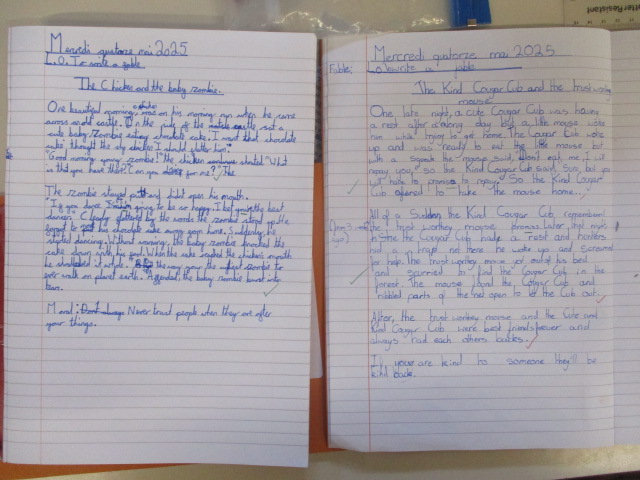 Mercredi quatorze mai 2025
L.O. To write a fable
The Chicken and the baby zombie.
One beautiful morning, a chicken was on his morning run when he came
across an old castle. the cat a
cute baby Zombie eating chocolate cake. I want that chocolate
cake, thought the sly chicken. I should flatter him."
"Good morning young zombie!" the chicken shouted. "What
is that you have there? Can you for me?", The
The zombie stayed put and didn't open his mouth.
"If you dance I'm going to be so happy. I bet your the best
dancer." Clearly flattered by the words the zombie stood up. He
forgot to his chocolate cake away from him. Suddenly, he
started dancing. Without warning, the baby zombie knocked the
cake down with his foot. When the cake reached the chicken's mouth
he swallowed it whole. the way your the silliest zombie to
ever walk on planet earth. Offended, the baby zombie burst into
tears.
Moral: Never trust people when they are after
your things.
Mercredi quatorze mai 2025
Fable: L.O. to write a fable
The Kind Cougar Cub and the trust worthy
mouse
One late night, a cute Cougar Cub was having
a rest after a day but a little mouse woke
him while trying to get home. The Cougar Cub woke
up and was ready to eat the little mouse but
with a squeak the mouse said, "Don't eat me, I will
repay you," so the Kind Cougar Cub said, "Sure, but you
will have to promise to repay." So the Kind Cougar
Cub offered to take the mouse home...
All of a Sudden the Kind Cougar Cub, remembered
the trust worthy mouses promise. Later, that night
the Cougar Cub had a rest and hunters
put a net on here. He woke up and Screamed
for help. The trust worthy mouse got out of his bed
and scurried to find the Cougar Cub in the
forest. The mouse found the Cougar Cub and
nibbled parts of the net open to let the Cub out.
After, the trust worthey mouse and the cute and
Kind Cougar Cub were best friends forever and
always had each others backs.
If you are kind to someone they'll be
kind back.